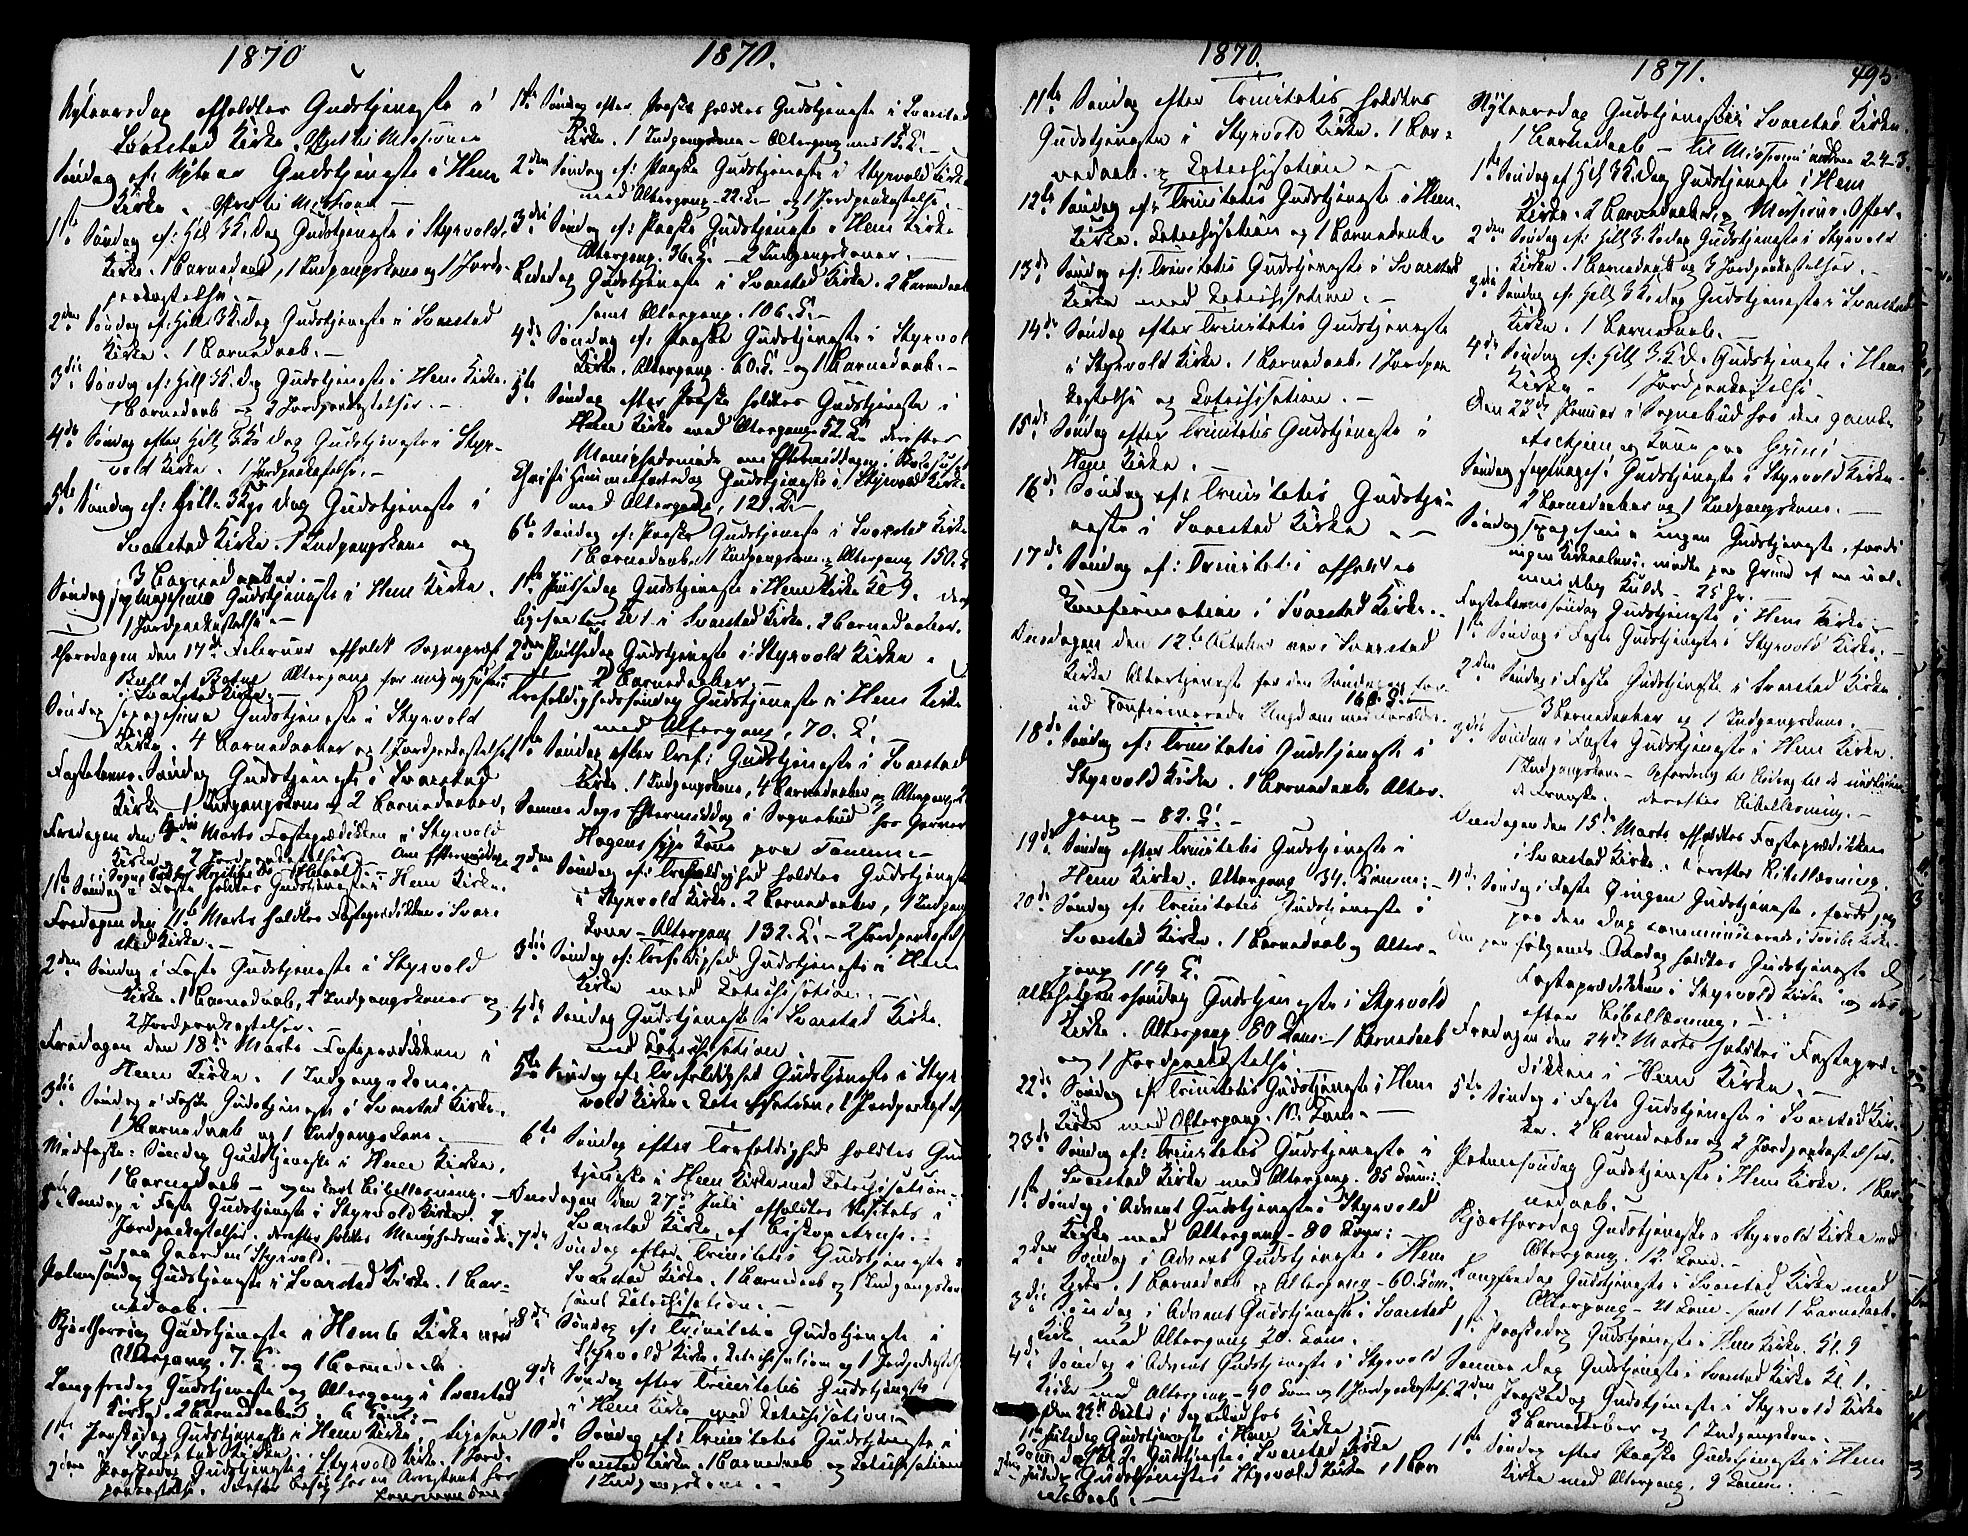 1870
Nytaarsdag afholdtes Gudstjeneste i
Svarstad Kirke.
Søndag ef: Nytaar Gudstjeneste i Hem
Kirke.
1ste Søndag ef: Hell 3K. Dag Gudstjeneste i Styrvold
Kirke. 1 Barnedaab, 1 Indgangskone og 1 Jords-
paakastelse.
2den Søndag ef: Hell 3K. Dag Gudstjeneste i Svarstad
Kirke. 1 Barnedaab.
3die Søndag ef: Hell 3K. Dag Gudstjeneste i Hem Kirke.
1 Barnedaab og 3 Jordpaakastelser.
4de Søndag efter Hell 3K. Dag Gudstjeneste i Styr-
vold Kirke. 1 Jordpaakastelse.
5te Søndag ef: Hell 3K. Dag Gudstjeneste i
Svarstad Kirke. 1 Indgangskone og
3 Barnedaaber.
Søndag Gudstjeneste i Hem Kirke.
1 Jordpaakastelse
Thorsdagen den 17de Februar afholdt Sogneprest
Altergang for mig og
i Svarstad Kirke.
Søndag sexagesima Gudstjeneste i Styrvold
Kirke. 4 Barnedaaber og 1 Jordpaakastelse
Fastelavns Søndag Gudstjeneste i Svarstad
Kirke 1 Indgangskone og 2 Barnedaaber,
Fredagen den Marts Fasteprædiken i Styrvold
Kirke. 2 Jordpaakastelser. Om Eftermiddag
1ste Søndag i Faste holdtes Gudstjeneste i Hem Kirke.
Fredagen den 11te Marts holdtes Fasteprædiken i Svar-
stad Kirke.
2den Søndag i Faste Gudstjeneste i Styrvold
Kirke. 1 Barnedaab, 2 Indgangskoner og
2 Jordpaakastelser.
Fredagen den 18de Marts Fasteprædiken i
Hem Kirke. 1 Indgangskone.
3die Søndag i Faste Gudstjeneste i Svarstad Kirke.
1 Barnedaab og 1 Indgangskone.
Midfaste-Søndag Gudstjeneste i Hem Kirke,
1 Barnedaab - Bibellæsning.
5te Søndag i Faste Gudstjeneste i Styrvold Kirke.
Jordpaakastelser. derefter holdtes Menighedsmøde
paa Gaarden Styrvold.
Palmesøndag Gudstjeneste i Svarstad Kirke. 1 Bar-
nedaab.
Skjærthorsdag Gudstjeneste i Hem Kirke med
Altergang. 7. og 1 Barnedaab.
Langfredag Gudstjeneste og Altergang i Svarstad
Kirke. 2 Barnedaaber
1ste Paaskedag Gudstjeneste i Hem Kirke, ligesaa
i Svarstad Kirke.
2den Paaskedag Gudstjeneste i Styrvold Kirke. 1 Jord-
paakastelse. derefter Besøg hos en Arrestant hos
Lensmanden
1870.
1ste Søndag efter Paaske holdtes Gudstjeneste i Svarstad
Kirke. 1 Indgangskone - Altergang med 15.
2den Søndag ef: Paaske Gudstjeneste i Styrvold Kirke
med Altergang - 22. og 1 Jordpaakastelse.
3die Søndag ef: Paaske Gudstjeneste i Hem Kirke
Altergang. 36. - 2 Indgangskoner.
Bededag Gudstjeneste i Svarstad Kirke. 2 Barnedaab
samt Altergang. 106.
4de Søndag ef: Paaske Gudstjeneste i Styrvold
Kirke. Altergang. 60. og 1 Barnedaab.
5te Søndag efter Paaske holdtes Gudstjeneste i
Hem Kirke med Altergang 52. derefter
Menighedsmøde om Eftermiddagen
Christi Himmelfartsdag Gudstjeneste i Styrvold Kirke
med Altergang, 121.
6te Søndag ef: Paaske Gudstjeneste i Svarstad Kirke
1 Barnedaab. 1 Indgangskone. Altergang 150.
1ste Pintsedag Gudstjeneste i Hem Kirke Kl 9.
ligesaa Kl 1. i Svarstad Kirke. 2 Barnedaaber.
2den Pintsedag Gudstjeneste i Styrvold Kirke.
2 Barnedaaber.
Trefoldighedssøndag Gudstjeneste i Hem Kirke
med Altergang, 70.
1ste Søndag efter Tref: Gudstjeneste i Svarstad
Kirke. 1 Indgangskone, 4 Barnedaaber og Altergang
Samme Dags Eftermiddag i Sognebud hos Garver
Hagens syge Kone paa
2den Søndag ef: Trefoldighed holdtes Gudstjeneste
i Styrvold Kirke. 2 Barnedaaber, 1 Indgangs
kone - Altergang 132. - 2 Jordpaakastelser
3die Søndag ef: Trefoldighed Gudstjeneste i Hem
Kirke med Catechisation.
4de Søndag Gudstjeneste i Svarstad Kirke.
med Catechisation
5te Søndag ef: Trefoldighed Gudstjeneste i Styr-
vold Kirke. Catechisation, 1 Jordpaakastelse
6te Søndag efter Trefoldighed holdtes Gud
tjeneste i Hem Kirke med Catechisation.
Onsdagen den 27de Juli afholdtes Visitats i
Svarstad Kirke af Biskopen
7de Søndag efter Trinitatis Gudstjeneste i
Svarstad Kirke. 1 Barnedaab og 1 Indgangskone
samt Catechisation.
8de Søndag ef: Trinitatis Gudstjeneste i
Styrvold Kirke. Catechisation og 1 Jordpaakastelse
9de Søndag efter Trinitatis Gudstjeneste
i Hem Kirke med Catechisation.
10de Søndag ef: Trinitatis Gudstjeneste i
Svarstad Kirke. 1 Barnedaab og Catechisation
1 Indgangskone.
1870.
11te Søndag efter Trinitatis holdtes
Gudstjeneste i Styrvold Kirke. 1 Bar-
nedaab og Catechisation.
12te Søndag ef: Trinitatis Gudstjeneste i Hem
Kirke. Catechisation og 1 Barnedaab.
13de Søndag ef: Trinitatis Gudstjeneste i Svarstad
Kirke med Catechisation.
14de Søndag efter Trinitatis Gudstjeneste
i Styrvold Kirke. 1 Barnedaab. 1 Jordpaa
kastelse og Catechisation.
15de Søndag efter Trinitatis Gudstjeneste i
Hem Kirke.
16de Søndag ef: Trinitatis Gudstje-
neste i Svarstad Kirke
17de Søndag ef: Trinitatis afholdtes
Confirmation i Svarstad Kirke.
Onsdagen den 12te October var i Svarstad
Kirke Altertjeneste for den
Confirmerede Ungdom med Forældre. 160
18de Søndag ef: Trinitatis Gudstjeneste i
Styrvold Kirke. 1 Barnedaab. Alter-
gang - 82.
19de Søndag efter Trinitatis Gudstjeneste i
Hem Kirke. Altergang 34.
20de Søndag ef: Trinitatis Gudstjeneste i
Svarstad Kirke. 1 Barnedaab og Alter-
gang 114
Allehelgensøndag Gudstjeneste i Styrvold
Kirke. Altergang 80 - 1 Barnedaab
og 1 Jordpaakastelse
22de Søndag ef: Trinitatis Gudstjeneste i Hem
Kirke med Altergang.
23de Søndag ef: Trinitatis Gudstjeneste i
Svarstad Kirke med Altergang. 85
1ste Søndag i Advent Gudstjeneste i Styrvold
Kirke med Altergang - 80
2den Søndag i Advent Gudstjeneste i Hem
Kirke. 1 Barnedaab og Altergang - 60
3die Søndag i Advent Gudstjeneste i Svarstad
Kirke med Altergang 20
4de Søndag i Advent Gudstjeneste i Styrvold
Kirke med Altergang - 40 og 1 Jordpaakastelse.
Den 22de i Sognebud hos
1ste Juledag Gudstjeneste i Hem Kirke
Samme Dag Kl. 2. Gudstjeneste i Svarstad Kirke
2den Juledag Gudstjeneste i Styrvold Kirke 1 Bar
nedaab.
1871. 495.
Nytaarsdag Gudstjeneste i Svarstad Kirke.
1 Barnedaab - Til Missionen 2-4-3.
1ste Søndag ef Hell 3K. Dag Gudstjeneste i Hem
Kirke. 2 Barnedaaber, Missions Offer.
2den Søndag ef: Hell 3K. Dag Gudstjeneste i Styrvold
Kirke. 1 Barnedaab og 3 Jordpaakastelser.
3die Søndag ef. Hell 3K. Dag Gudstjeneste i Svarstad
Kirke. 1 Barnedaab.
4de Søndag ef: Hell 3K. D. Gudstjeneste i Hem
Kirke - 1 Jordpaakastelse
Den 23de Januar i Sognebud hos den gamle
og Kone paa Grini
Søndag septuages: Gudstjeneste i Styrvold Kirke.
2 Barnedaaber og 1 Indgangskone.
Søndag sexagesima ingen Gudstjeneste, fordi
ingen Kirkealmue mødte paa Grund af en ual-
mindelig Kulde - 25 Gr.
Fastelavnssøndag Gudstjeneste i Hem Kirke.
1ste Søndag i Faste Gudstjeneste i Styrvold Kirke.
2den Søndag i Faste Gudstjeneste i Svarstad Kirke
3 Barnedaaber og 1 Indgangskone.
3die Søndag i Faste Gudstjeneste i Hem Kirke.
1 Indgangskone - Opfordring til Bidrag til de nødlidende
Franske. derefter Bibellæsning.
Onsdagen den 15de Marts afholdtes Fasteprædiken
i Svarstad Kirke. derefter Bibellæsning.
4de Søndag i Faste ingen Gudstjeneste, fordi jeg
paa den Dag communicerede i Kirke.
Den paafølgende Onsdag holdtes Gudstjeneste
Fasteprædiken i Styrvold Kirke og der-
efter Bibellæsning.
Fredagen den 24de Marts holdtes Fastepræ-
diken i Hem Kirke.
5te Søndag i Faste Gudstjeneste i Svarstad Kir-
ke. 2 Barnedaaber og 2 Jordpaakastelser.
Palmesøndag Gudstjeneste i Hem Kirke. 1 Bar-
nedaab.
Skjærthorsdag Gudstjeneste i Styrvold Kirke med
Altergang. 12
Langfredag Gudstjeneste i Svarstad Kirke med
Altergang - 21 samt 1 Barnedaab.
1ste Paaskedag Gudstjeneste i Hem Kirke. Kl. 9
Samme Dag Gudstjeneste i Svarstad Kirke Kl. 1.
2den Paaskedag Gudstjeneste i Styrvold Kirke
3 Barnedaaber og 1 Indgangskone.
1ste Søndag efter Paaske Gudstjeneste i Hem
Kirke med Altergang. 9